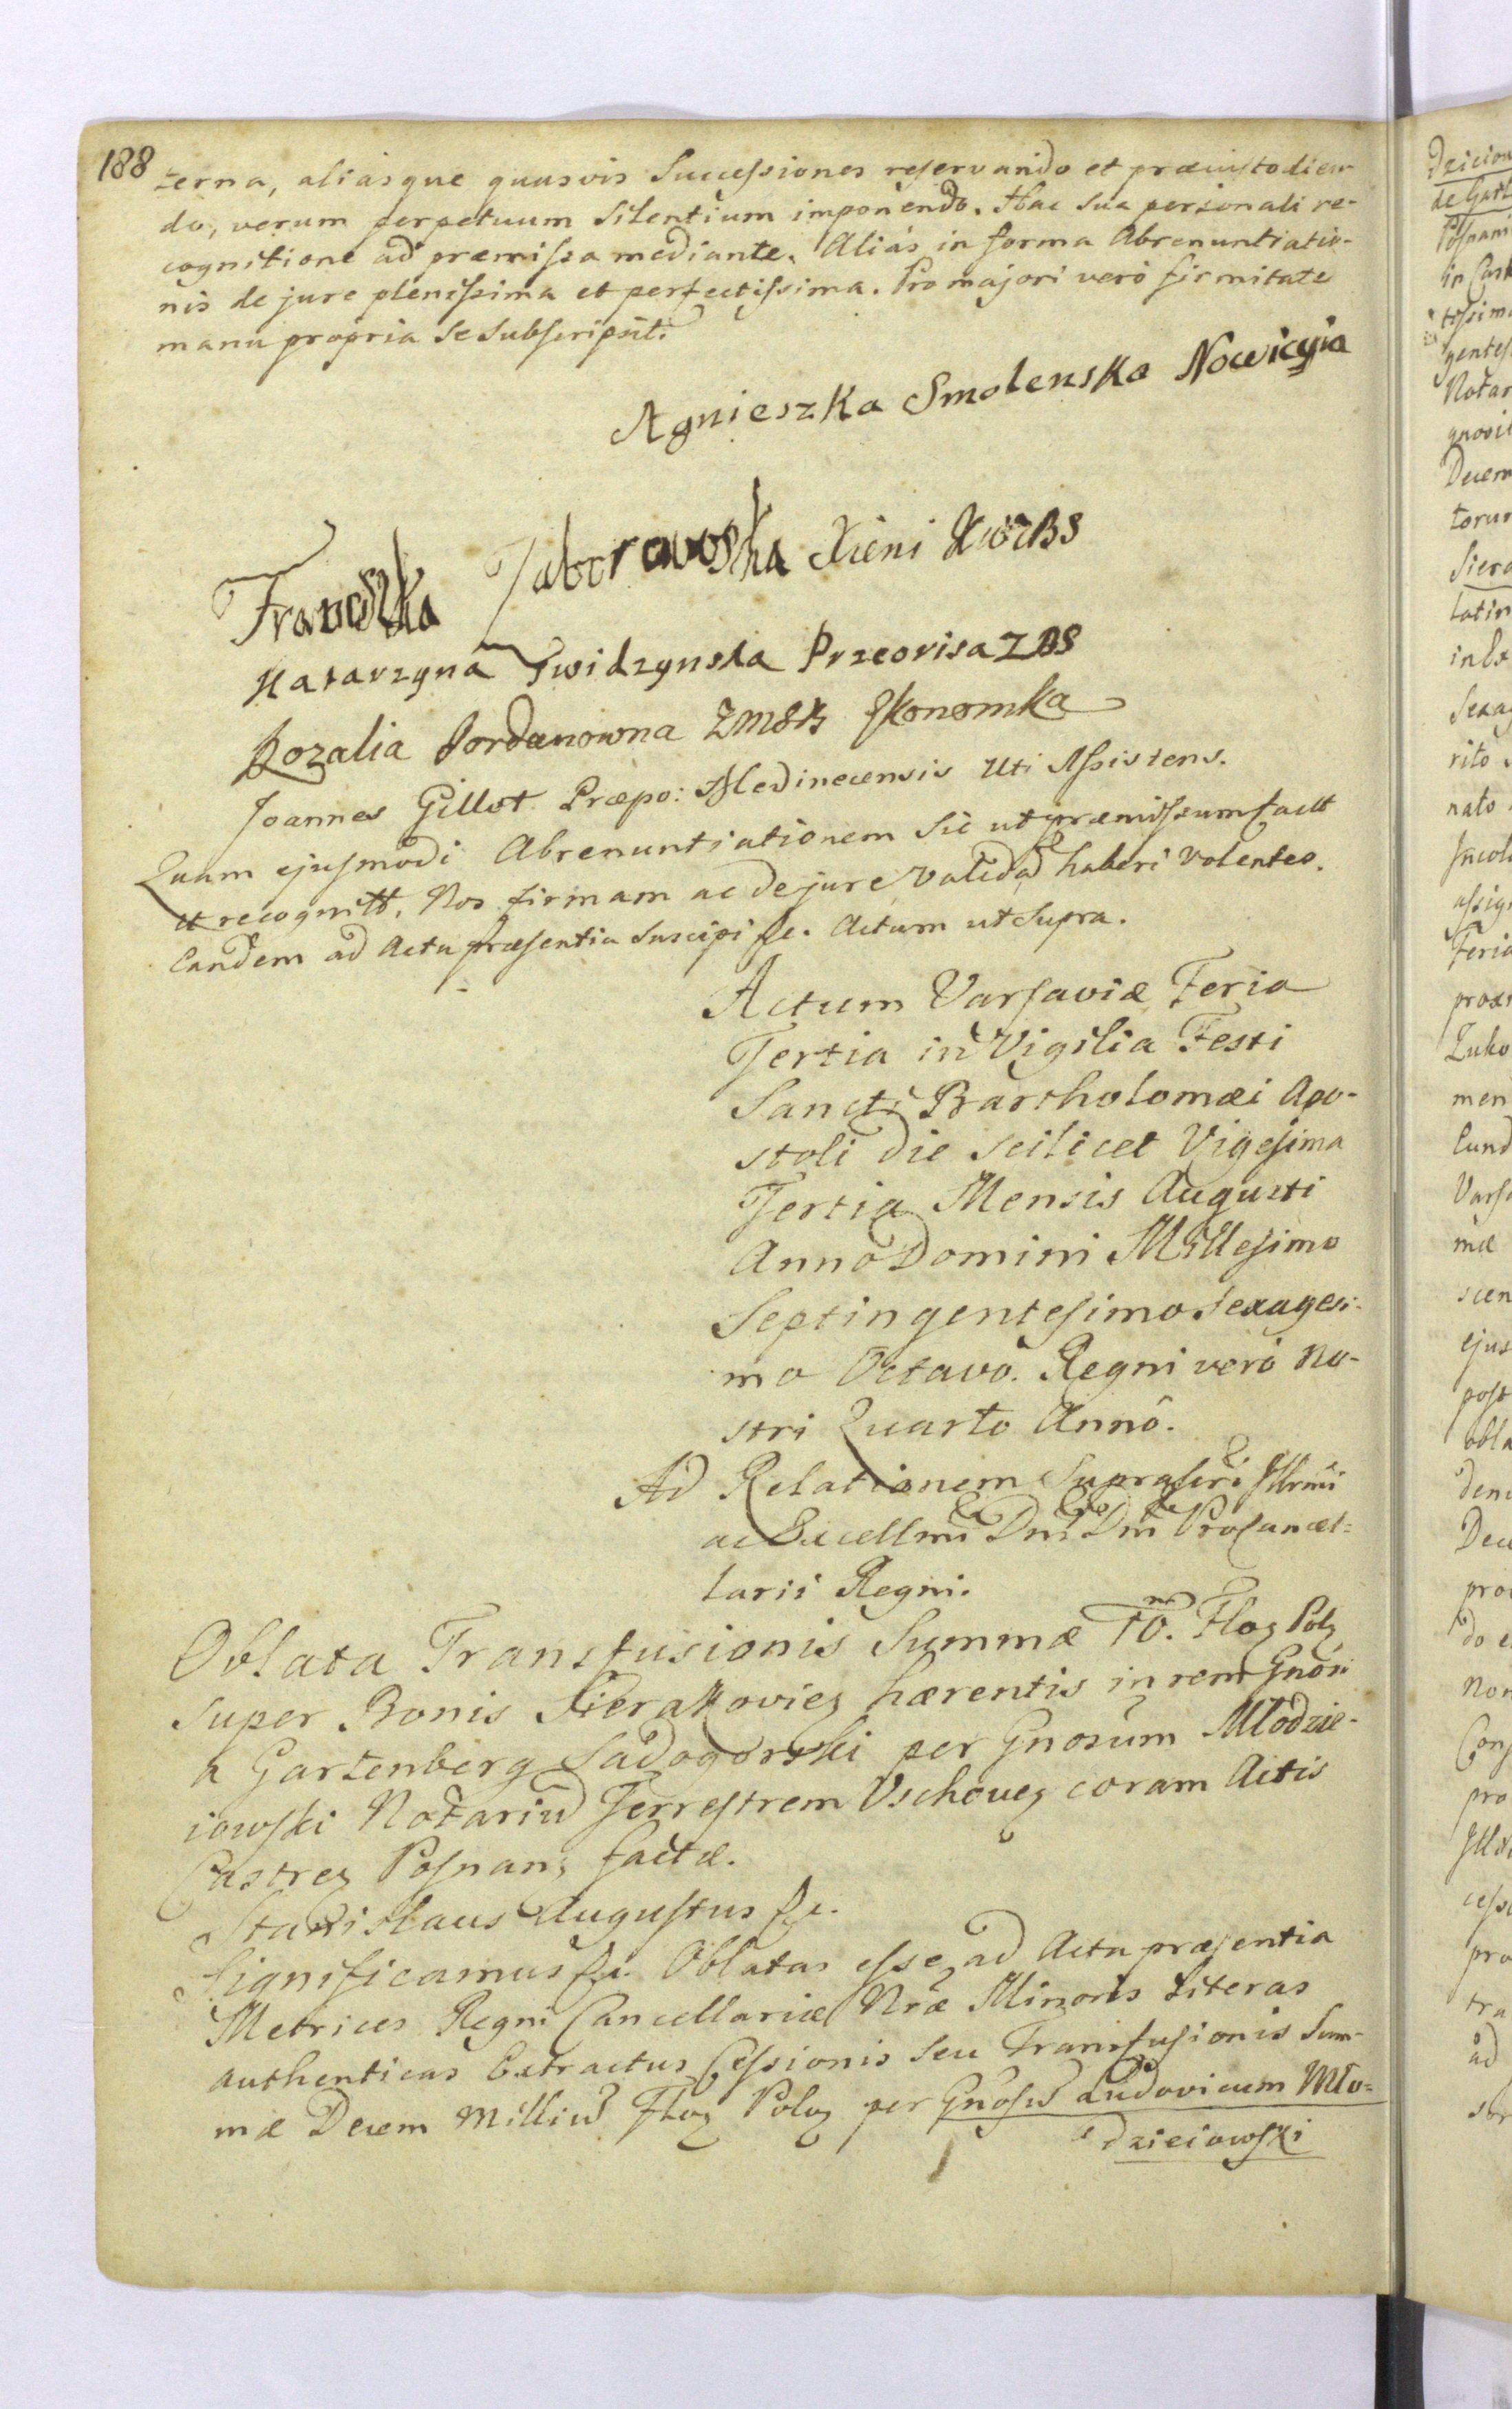 188
terna, aliasque quasvis Successiones reservando et præcustodien-
do, verum perpetuum Silentium imponendo. Hac sua personali re-
cognitione ad præmissa mediante. Aliás in forma Abrenuntiatio-
nis de jure plenissima et perfectissima. Pro majori veró firmitate
manu propria se subscripsit.
Agnieszka Smolenska Nowicyia
Franciszka Taborowska Xieni
Katarzyna Gwidzynska Przeorisa ZBS
Rozalia Jordanowna ZMSB Ekonomka
Joannes Gillot Præpo: Medinecensis Uti Assistens.
Quam ejusmodi Abrenuntiationem Sic ut præmissum factt
et recognitt. Nos firmam ac de jure validã haberi Volentes.
Eandem ad Acta præsentia suscipi &c. Actum ut Supra.
Actum Varsaviæ Feria
Tertia in Vigilia Festi
Sancti Bartholomæi Apo-
stoli die scilicet Vigesima
Tertia Mensis Augusti
Anno Domini Millesimo
Septingentesimo Sexagesi-
mo Octavo. Regni veró No-
stri Quarto Annô.
Ad Relationem Suprascri Illrmi
ac Excellmi Dni Dni Procancel-
larii Regni.
Oblata Transfusionis Summæ 10.m Floz Polz
super Bonis Sierakoviez hærentis in rem Gnosi
a Gartenberg Sadogorski per Gnosum Młodzie-
iowski Notariũ Terrestrem Vschovez coram Actis
Castrez Posnanz factæ.
Stanislaus Augustus &c.
Significamus &c. Oblatas esse ad Acta præsentia
Metrices Regni Cancellariæ Nræ Minoris Literas
authenticas Extractus Cessionis seu Transfusionis Sum-
mæ Decem Milliũ Floz Poloz per Gnosũ Ludovicum Mło-
dzieiowski